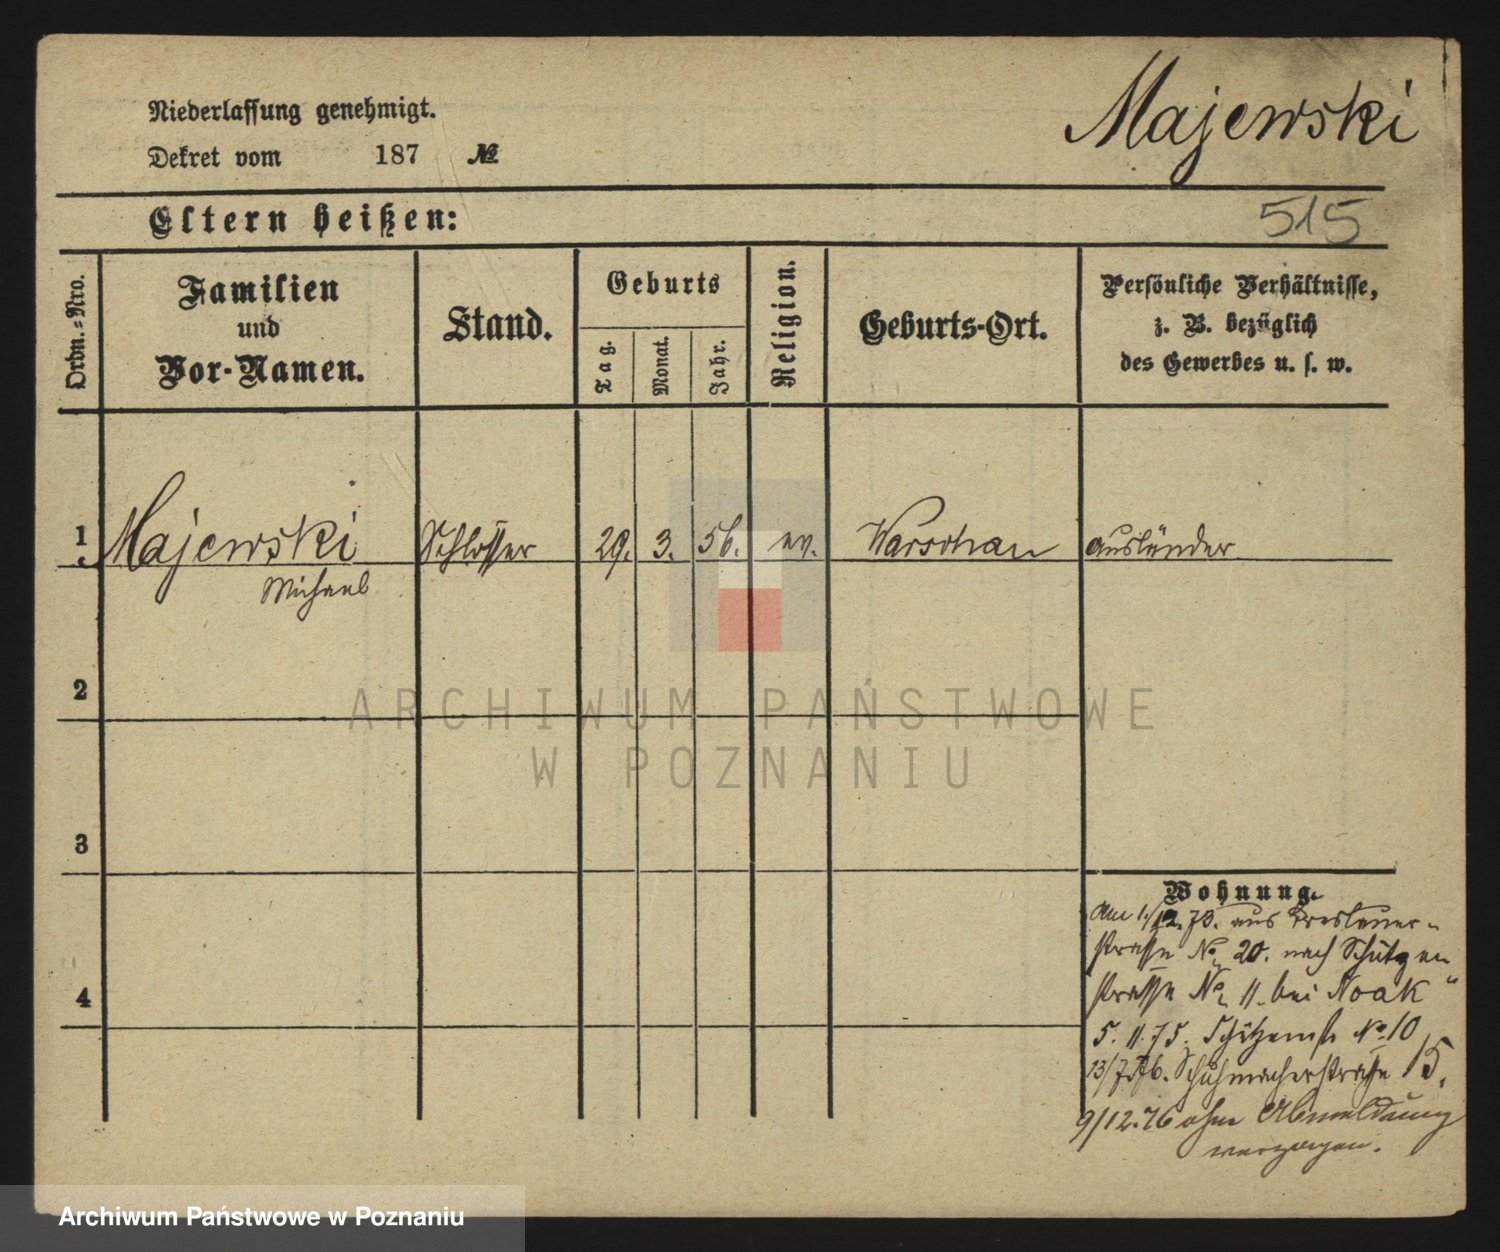 Majewski
Niederlassung genehmigt.
Dekret vom 187 №
Eltern heißen:
515
Ordn.=Nro.
Familien
und
Vor-Namen.
Stand.
Geburts
Tag.
Monat.
Jahr.
Religion.
Geburts-Ort.
Persönliche Verhältnisse,
z. B. bezüglich
des Gewerbes u. s. w.
1 Majewski Schlosser 29. 3. 56. ev. Warschau Ausländer
Michael
2
ARCHIWUM PAŃSTWOWE
W POZNANIU
3
Wohnung.
Am 1./12.73. aus Breslauer-
strasse No 20. nach Schützen
strasse No 11. bei Noak
4
5.11.75. Schützenstr No 10
13/7 76. Schuhmacherstrasse 15.
9/12.76 ohne Abmeldung
verzogen.
Archiwum Państwowe w Poznaniu